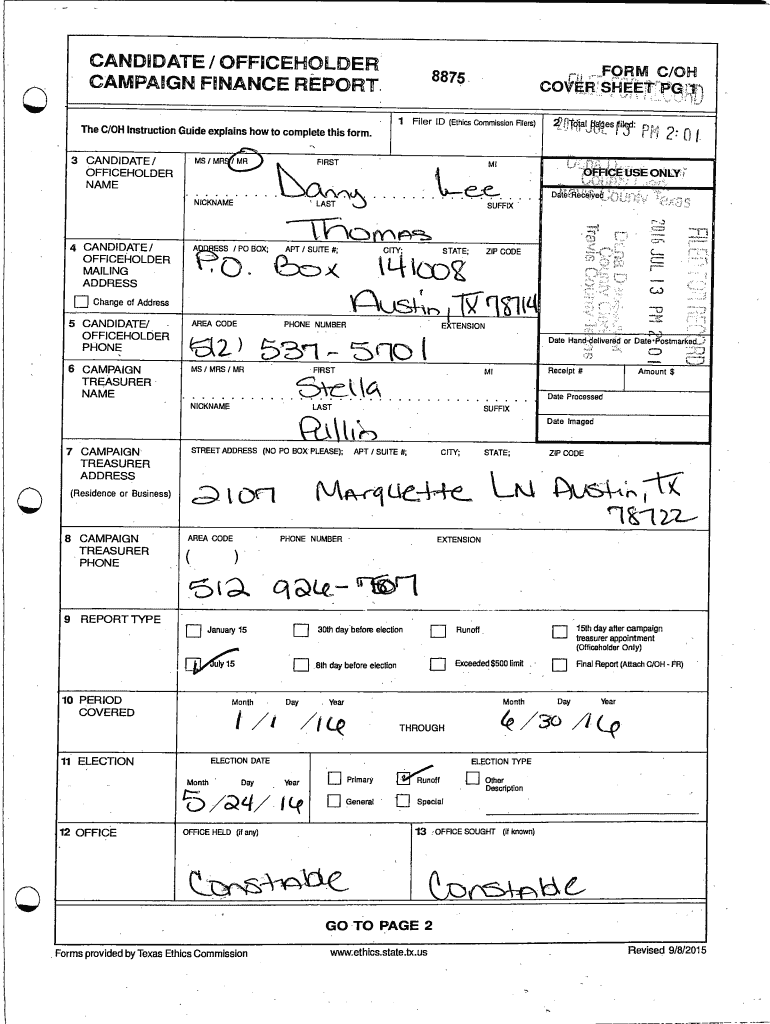 CANDIDATE / OFFICEHOLDER
CAMPAIGN FINANCE REPORT
8875
FORM C/OH
COVER SHEET PG 1
The C/OH Instruction Guide explains how to complete this form.
1 Filer ID (Ethics Commission Filers)
2 Total pages filed:
2016 JUL 13 PM 2:01
3 CANDIDATE / OFFICEHOLDER NAME
MS / MRS / MR
FIRST
MI
Danny Lee
NICKNAME
LAST
SUFFIX
Thomas
OFFICE USE ONLY
Date Received
FILED FOR RECORD
2016 JUL 13 PM 2:01
County Clerk
Travis County Texas
4 CANDIDATE / OFFICEHOLDER MAILING ADDRESS
Change of Address
ADDRESS / PO BOX; APT / SUITE #; CITY; STATE; ZIP CODE
P.O. Box 141008
Austin, TX 78714
5 CANDIDATE/ OFFICEHOLDER PHONE
AREA CODE
PHONE NUMBER
EXTENSION
(512) 537-5701
Date Hand-delivered or Date Postmarked
6 CAMPAIGN TREASURER NAME
MS / MRS / MR
FIRST
MI
Stella
NICKNAME
LAST
SUFFIX
Receipt #
Amount $
Date Processed
Date Imaged
7 CAMPAIGN TREASURER ADDRESS
(Residence or Business)
STREET ADDRESS (NO PO BOX PLEASE); APT / SUITE #; CITY; STATE; ZIP CODE
2107 Marquette LN Austin, TX
78722
8 CAMPAIGN TREASURER PHONE
AREA CODE
PHONE NUMBER
EXTENSION
( )
512 926-
9 REPORT TYPE
January 15
30th day before election
Runoff
15th day after campaign treasurer appointment (Officeholder Only)
July 15
8th day before election
Exceeded $500 limit
Final Report (Attach C/OH - FR)
10 PERIOD COVERED
Month Day Year
1 / 1 / 16
THROUGH
Month Day Year
6 / 30 / 16
11 ELECTION
ELECTION DATE
Month Day Year
5 / 24 / 16
ELECTION TYPE
Primary
Runoff
Other Description
General
Special
12 OFFICE
OFFICE HELD (if any)
Constable
13 OFFICE SOUGHT (if known)
Constable
GO TO PAGE 2
Forms provided by Texas Ethics Commission
www.ethics.state.tx.us
Revised 9/8/2015